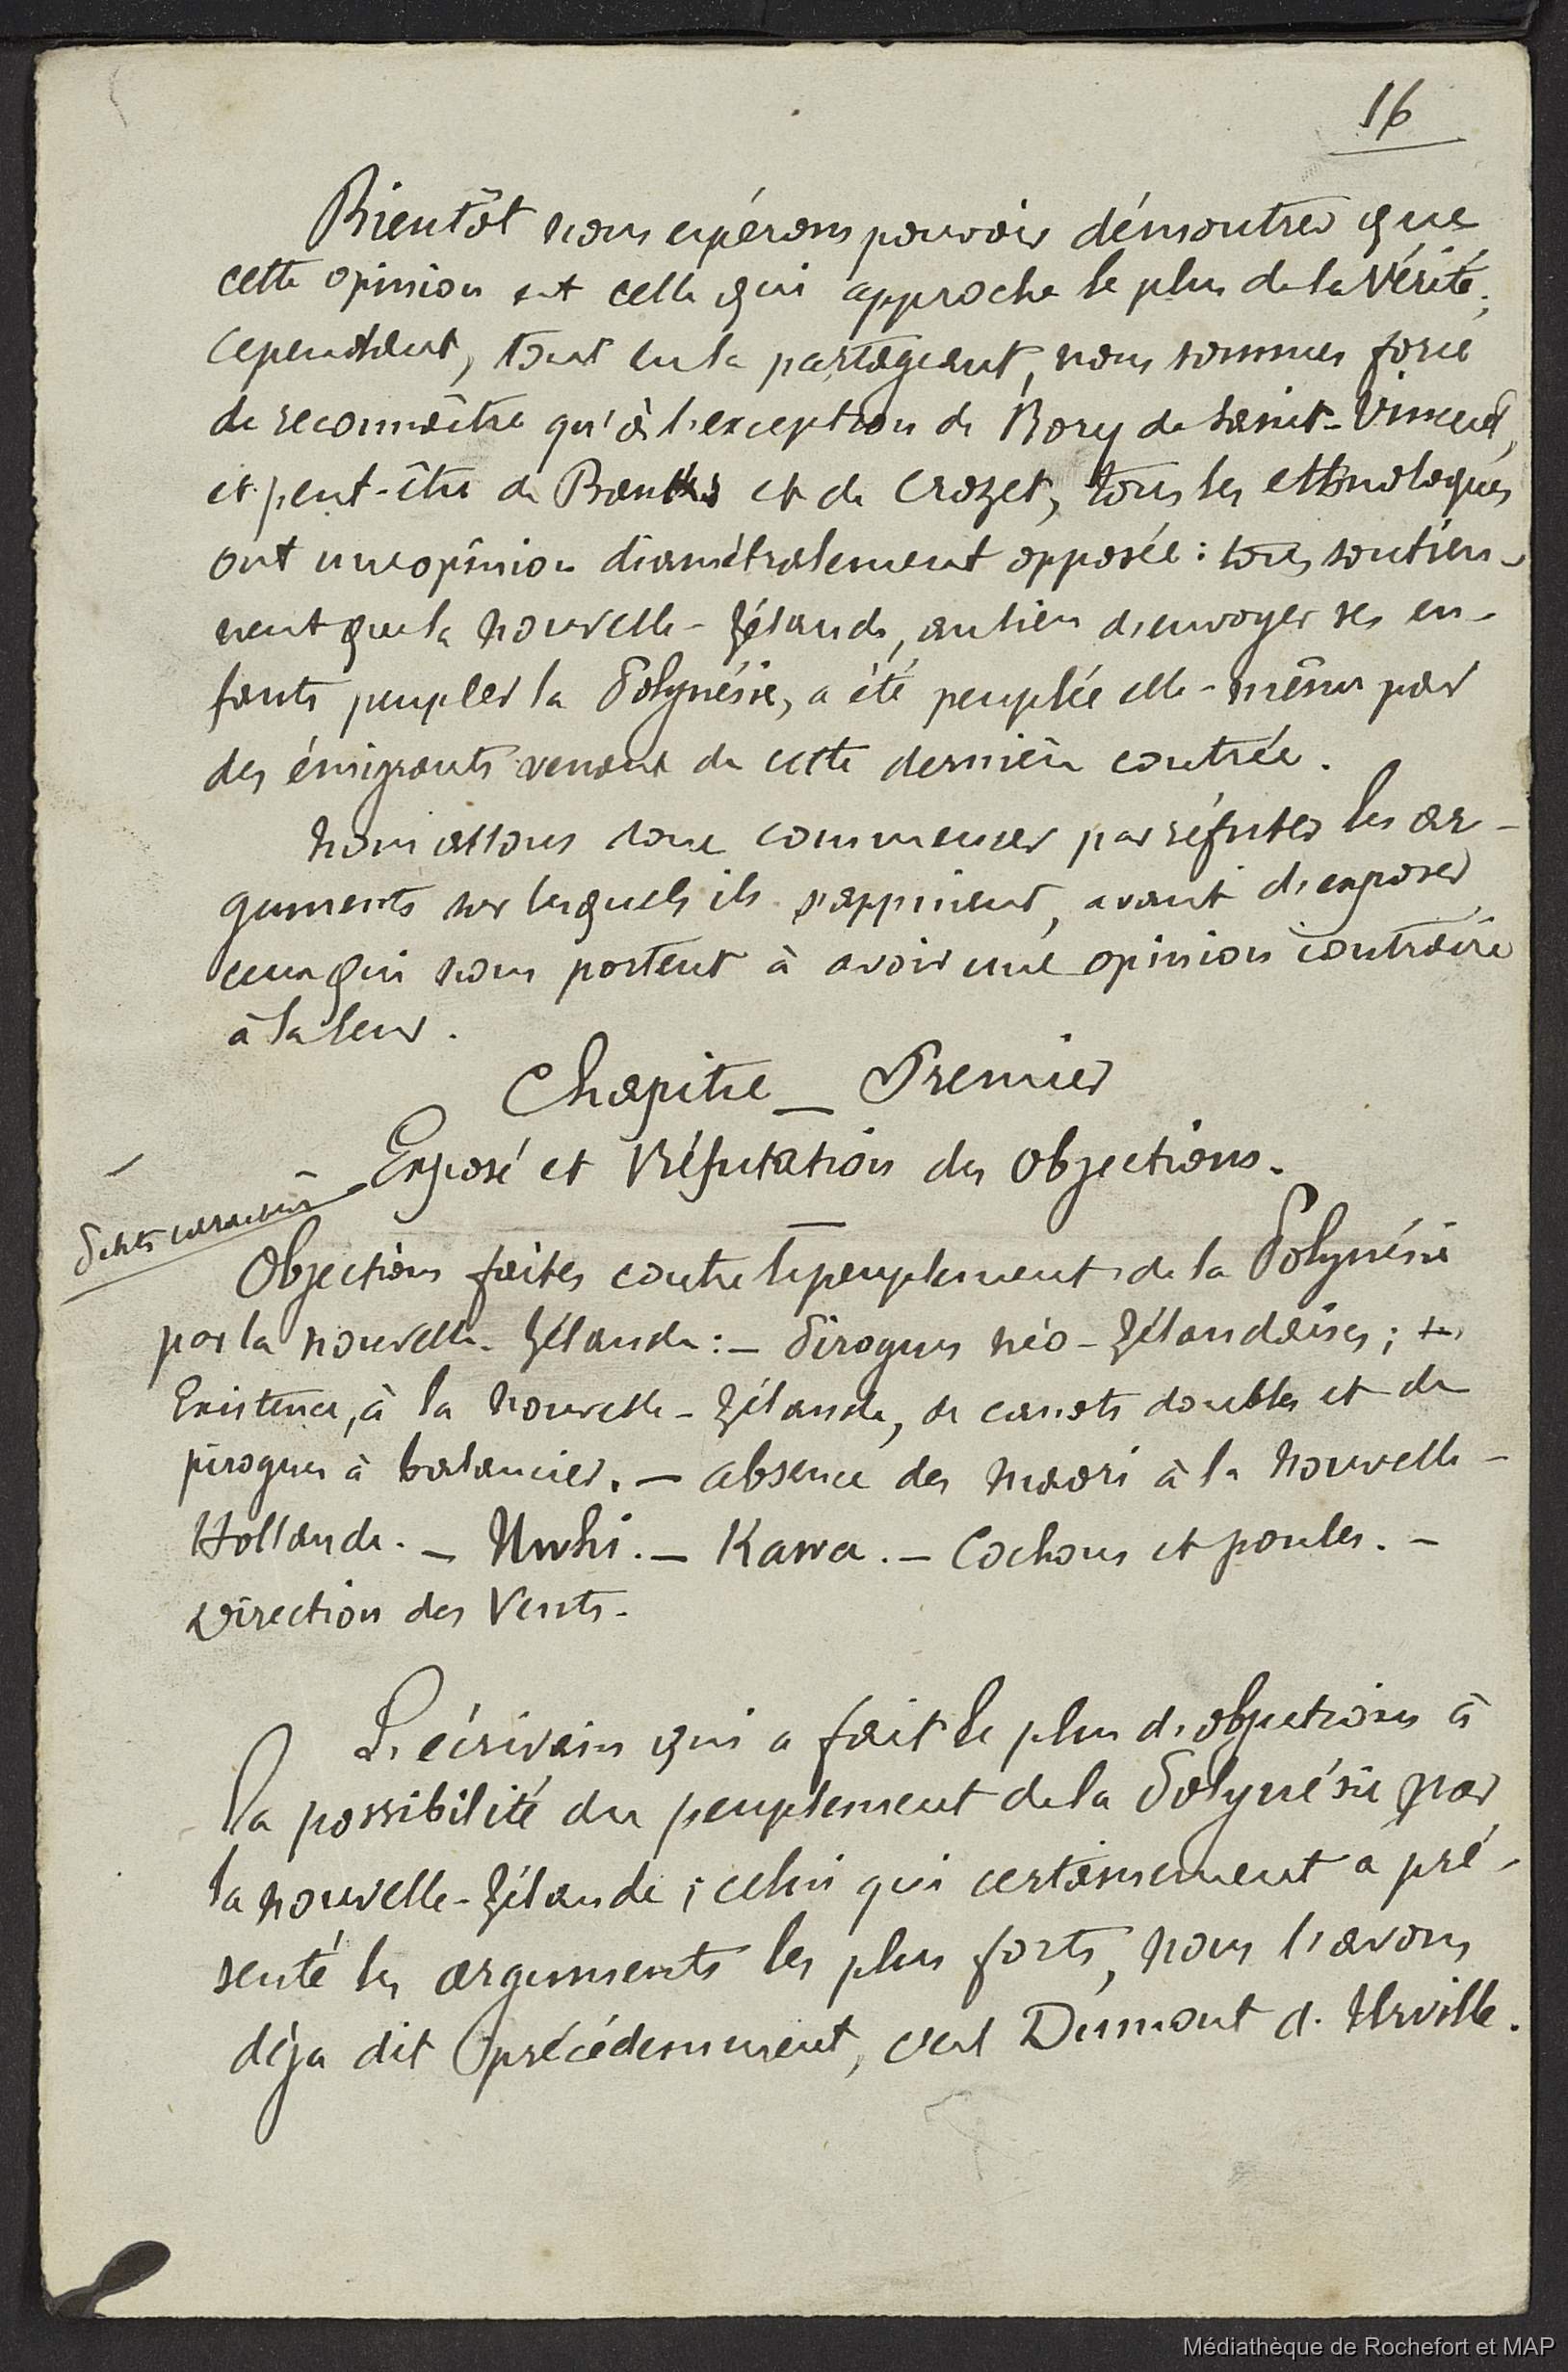 16
Bientôt nous espérons pouvoir démontrer que
cette opinion est celle qui approche le plus de la Vérité;
cependant, tout en la partageant, nous sommes forcé
de reconnaître qu'à l'exception de Bory de Saint-Vincent,
et peut-être de Banks et de Crozet, tous les ethnologues
ont une opinion diamétralement opposée : tous soutien-
nent que la nouvelle-Zélande, au lieu d'envoyer ses en-
fants peupler la Polynésie, a été peuplée elle-même par
des émigrants venant de cette dernière contrée.
Nous allons donc commencer par réfuter les ar-
guments sur lesquels ils s'appuient, avant d'exposer
ceux qui nous portent à avoir une opinion contraire
à la leur.
Chapitre _ Premier
Exposé et Réfutation des Objections.
Petits caractères
Objections faites contre le peuplement de la Polynésie
par la nouvelle-Zélande : - Pirogues néo-Zélandaises ;
Existence, à la nouvelle-Zélande, de canots doubles et de
pirogues à balancier. - absence des Maori à la Nouvelle-
Hollande. - Uwhi. - Kawa. - Cochons et poules. -
Direction des Vents.
L'écrivain qui a fait le plus d'objections à
la possibilité du peuplement de la Polynésie par
la nouvelle-Zélande ; celui qui certainement a pré-
senté les arguments les plus forts, nous l'avons
déja dit précédemment, c'est Dumont d'Urville.
Médiathèque de Rochefort et MAP